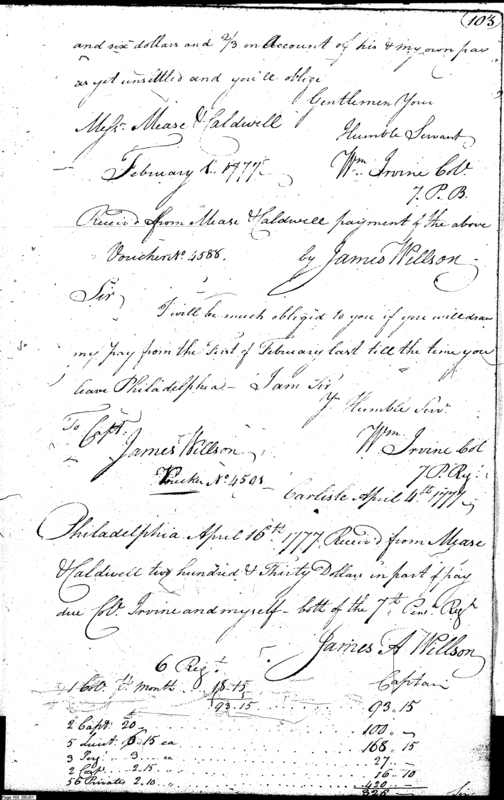 103
and six dollars and 2/3 on Account of his & my own pay
as yet unsettled and you'll oblige
Gentlemen Your
Messrs. Mease & Caldwell
Humble Servant
February 1. 1777.
Wm. Irvine Col.
7. P. B.
Receiv'd from Mease & Caldwell payment of the above
Voucher No. 4588.
by James Willson
Sir
I will be much obliged to you if you will draw
my pay from the first of February last till the time you
leave Philadelphia - I am Sir
Yr Humble Servt.
To Capt.
James Willson
Wm Irvine Col
7 P. Rg.
Voucher No. 4501
Carlisle April 4th 1777
Philadelphia April 16th. 1777 Receiv'd from Mease
& Caldwell two hundred & Thirty Dollars in part of pay
due Col. Irvine and myself - both of the 7th Pens. Regt
James A Willson
Captain
6 Regt
1 Col. month 18.15
93.15
93.15
2 Capt. 20
100
5 Lieut. 15 ea
168.15
3 3 ea
27
2 2.15
16.10
56 Privates 2.10
420
826